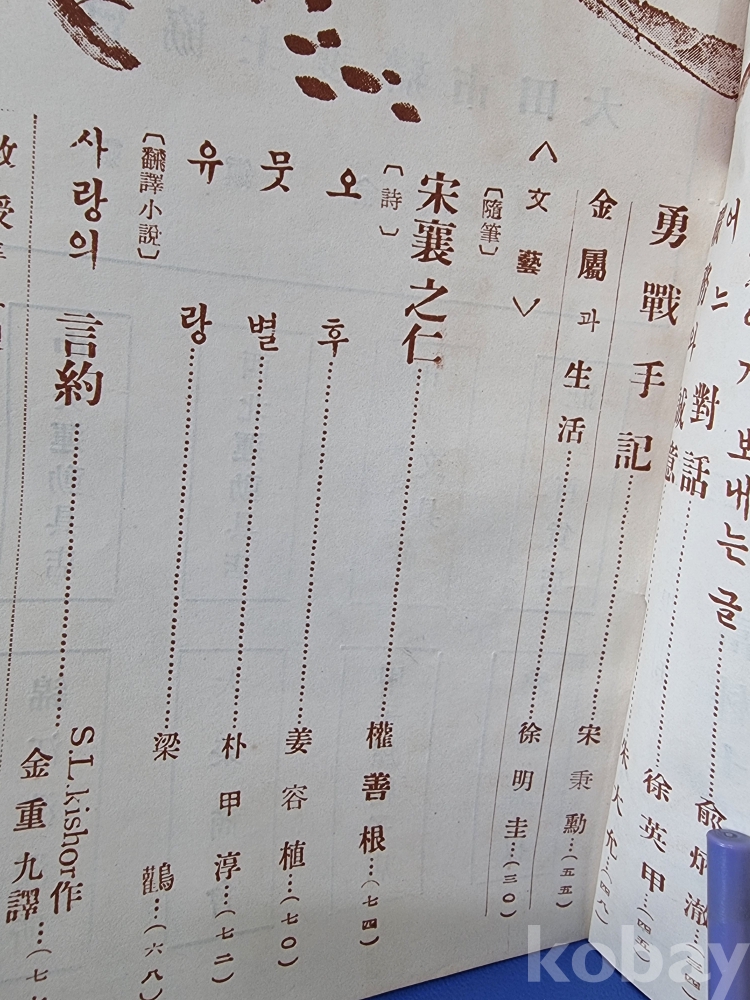 보내는 글……兪炳澈…
對話……徐英甲…(四五)
朱大允…(四八)
勇戰手記……宋秉勳…(五五)
金屬과 生活……徐明圭…(三〇)
<文藝>
〔隨筆〕
宋襄之仁……權善根…(七四)
〔詩〕
오후……姜容植…(七〇)
뭇별……朴甲淳…(七二)
유랑……梁鸛…(六八)
〔翻譯小說〕
사랑의 言約……S.L.kishor作
金重九譯…
kobay